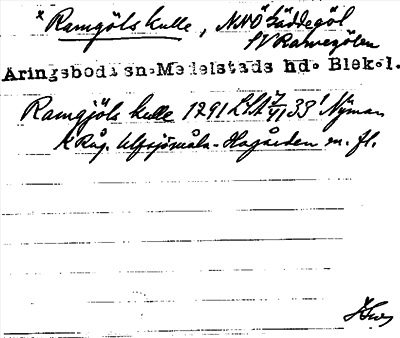 × Ramgöls kulle, NNÖ Gäddegöl
SV Ramsgölen
Aringsboda sn. Medelstads hd. Blek.l.
Ramgjöls kulle 1291 33 Nyman
Råg. Ulfsjömåla-Hagården m. fl.